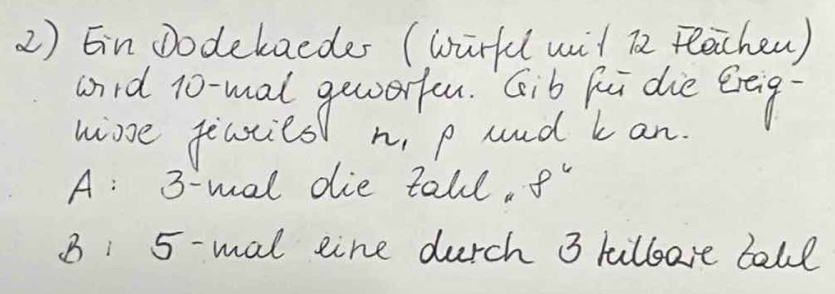 2) Ein Dodekaeder (Würfel mit 12 Flächen)
wird 10-mal geworfen. Gib für die Ereig-
nisse jeweils n, p und k an.
A: 3-mal die Zahl „8“
B: 5-mal eine durch 3 teilbare Zahl